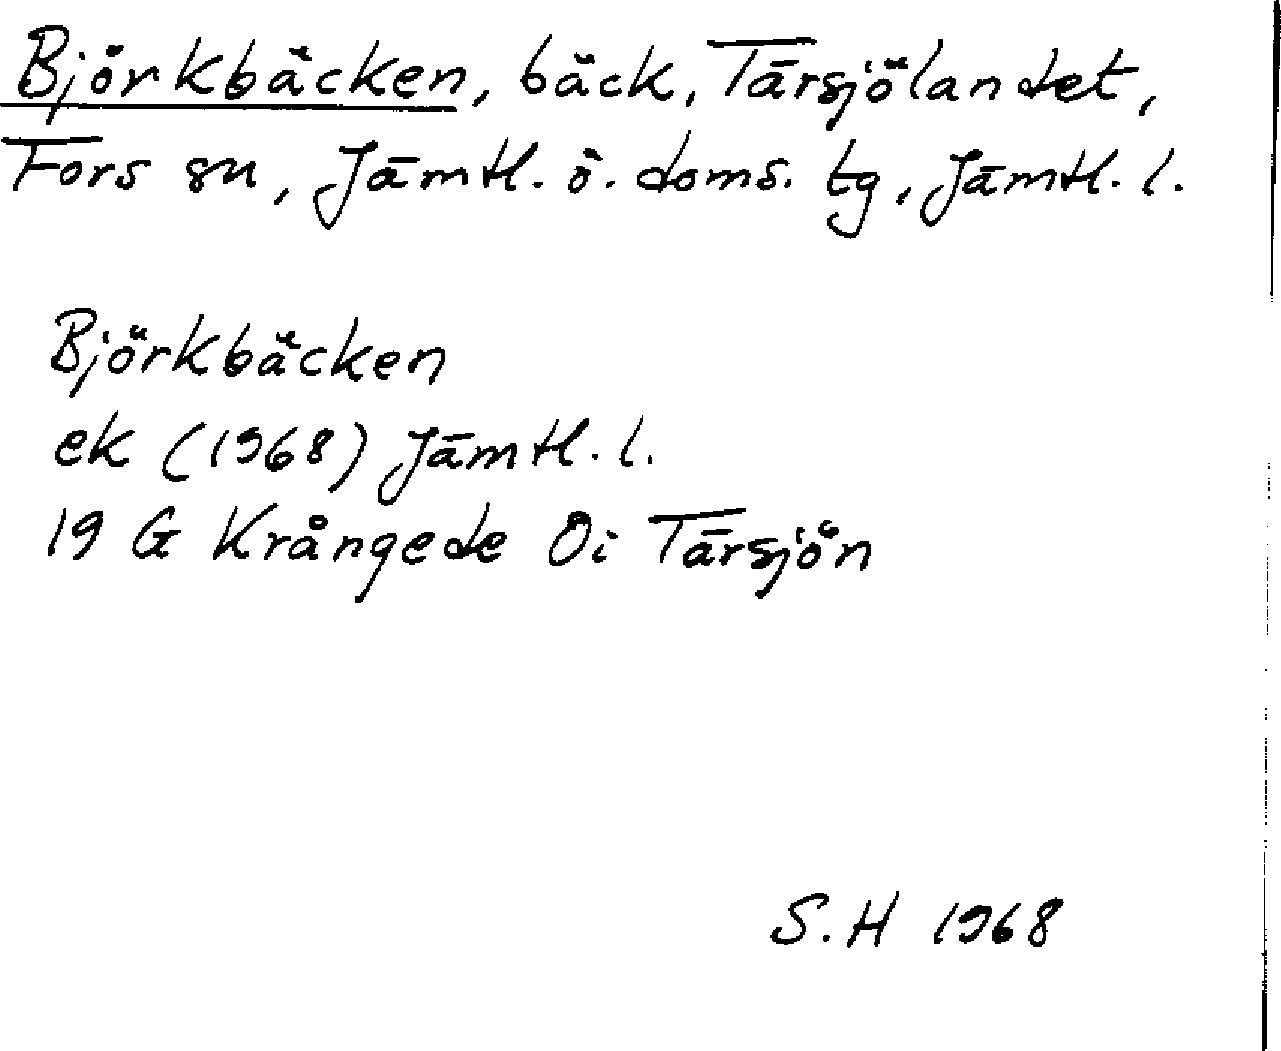 Björkbäcken, bäck, Tärsjölandet,
Fors sn, Jämtl. ö. doms. tg, Jämtl. l.
Björkbäcken
ek (1968) Jämtl. l.
19 G Krångede Öi Tärsjön
S.H 1968